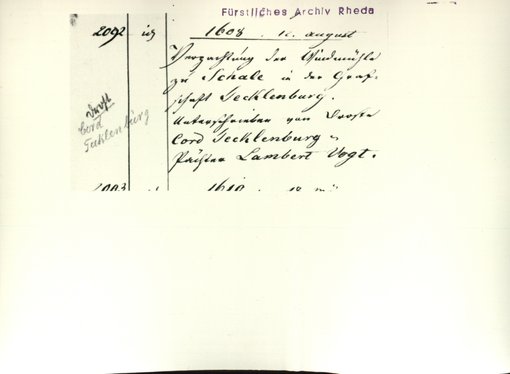 Fürstliches Archiv Rheda
2092
1608. 12. august
Verpachtung der Windmühle
zu Schale in der Graf-
schaft Tecklenburg.
Unterschrieben von Droste
Cord Tecklenburg u
Pächter Lambert Vogt.
Droste
Cord
Tecklenburg
2093
1610